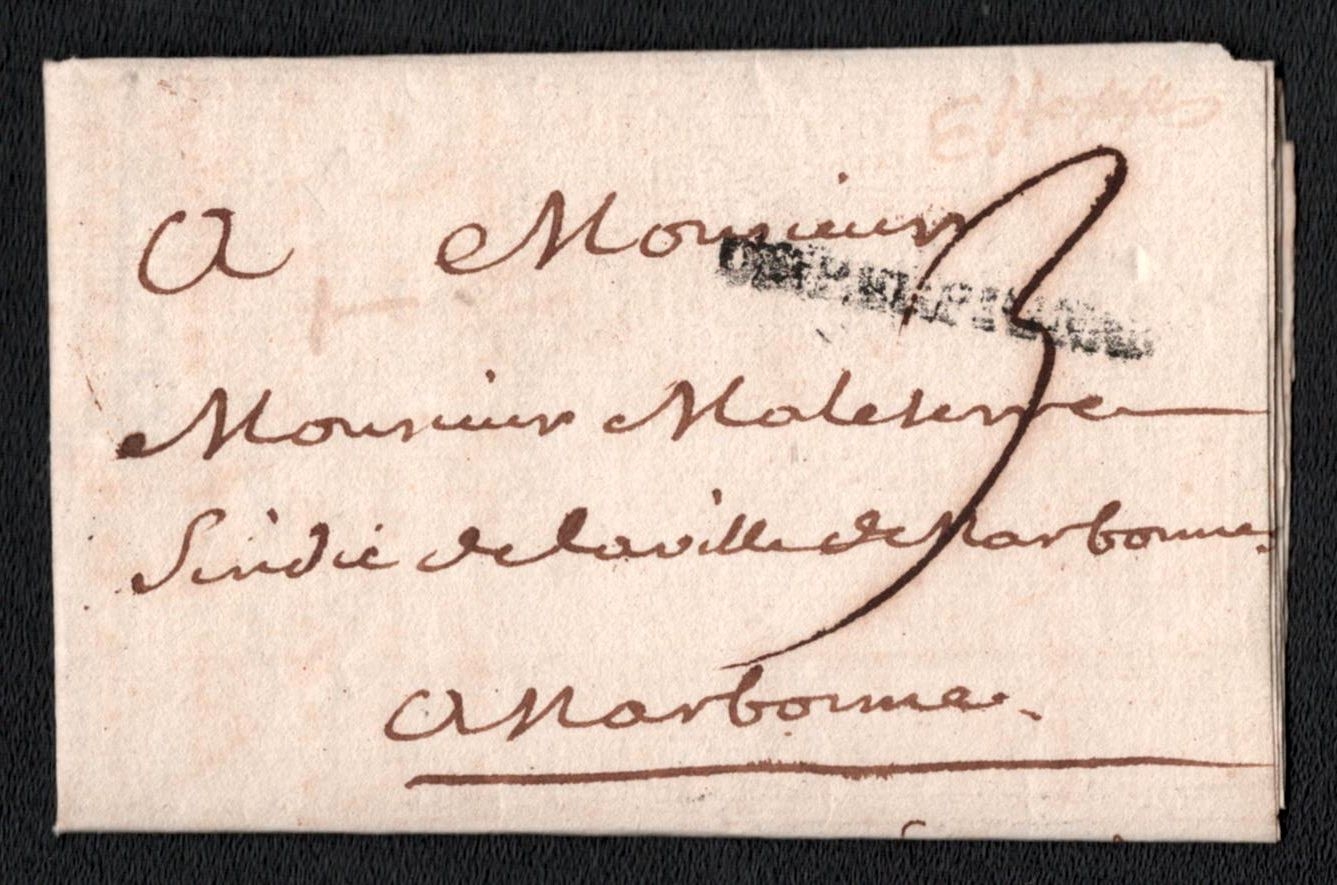 A Monsieur
3
Monsieur Maleterre
Sindic de la ville de Narbonne.
A Narbonne.